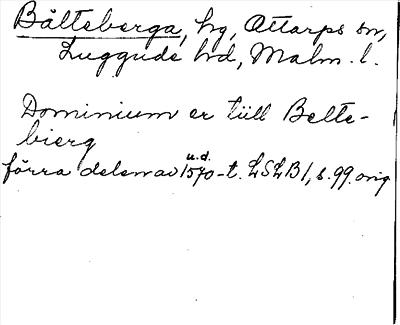 Bålteberga, hg, Ottarps sn,
Luggude hd, Malm. l.
Dominium er tüll Belte-
bierg
u.d.
förra delen av 1570-t. LSLB 1, s. 99. orig